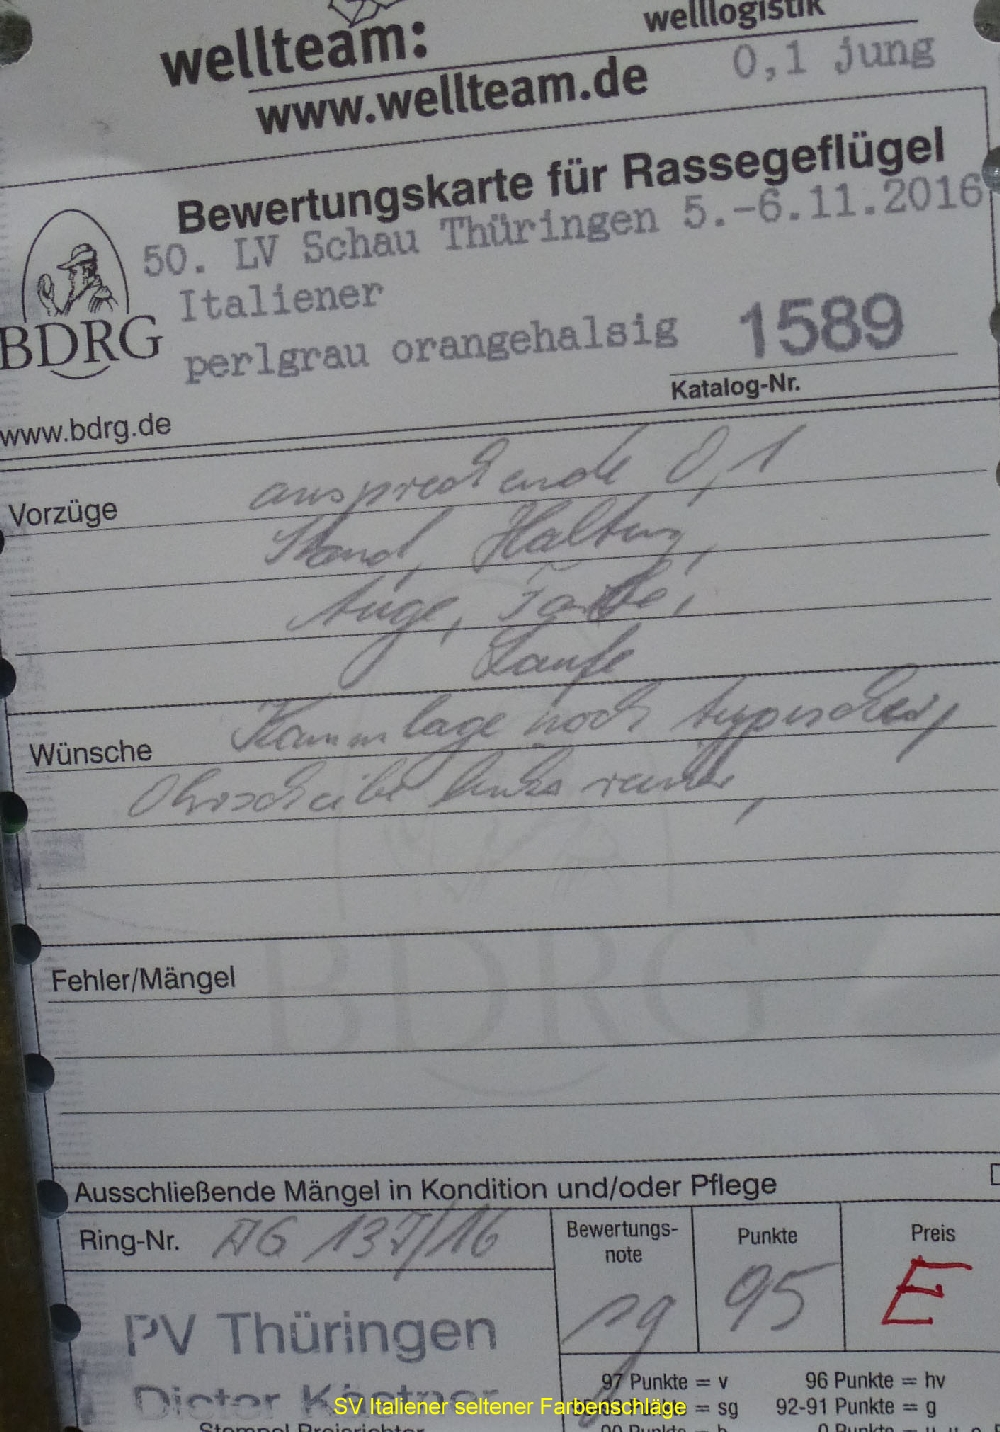 welllogistik
wellteam:
www.wellteam.de 0,1 jung
Bewertungskarte für Rassegeflügel
50. LV Schau Thüringen 5.-6.11.2016
Italiener
perlgrau orangehalsig 1589
BDRG
Katalog-Nr.
www.bdrg.de
Vorzüge ansprechende 0,1
Stand, Haltung,
Auge, Farbe,
Läufe
Wünsche Kammlage noch typischer,
Ohrscheibe links reiner,
BDRG
Fehler/Mängel
Ausschließende Mängel in Kondition und/oder Pflege
Ring-Nr. AG 137/16
Bewertungs-
note
Punkte
Preis
sg 95 E
PV Thüringen
Dieter Kästner
97 Punkte = v 96 Punkte = hv
= sg 92-91 Punkte = g
SV Italiener seltener Farbenschläge
Stempel Preisrichter
90 Punkte = b 0 Punkte =